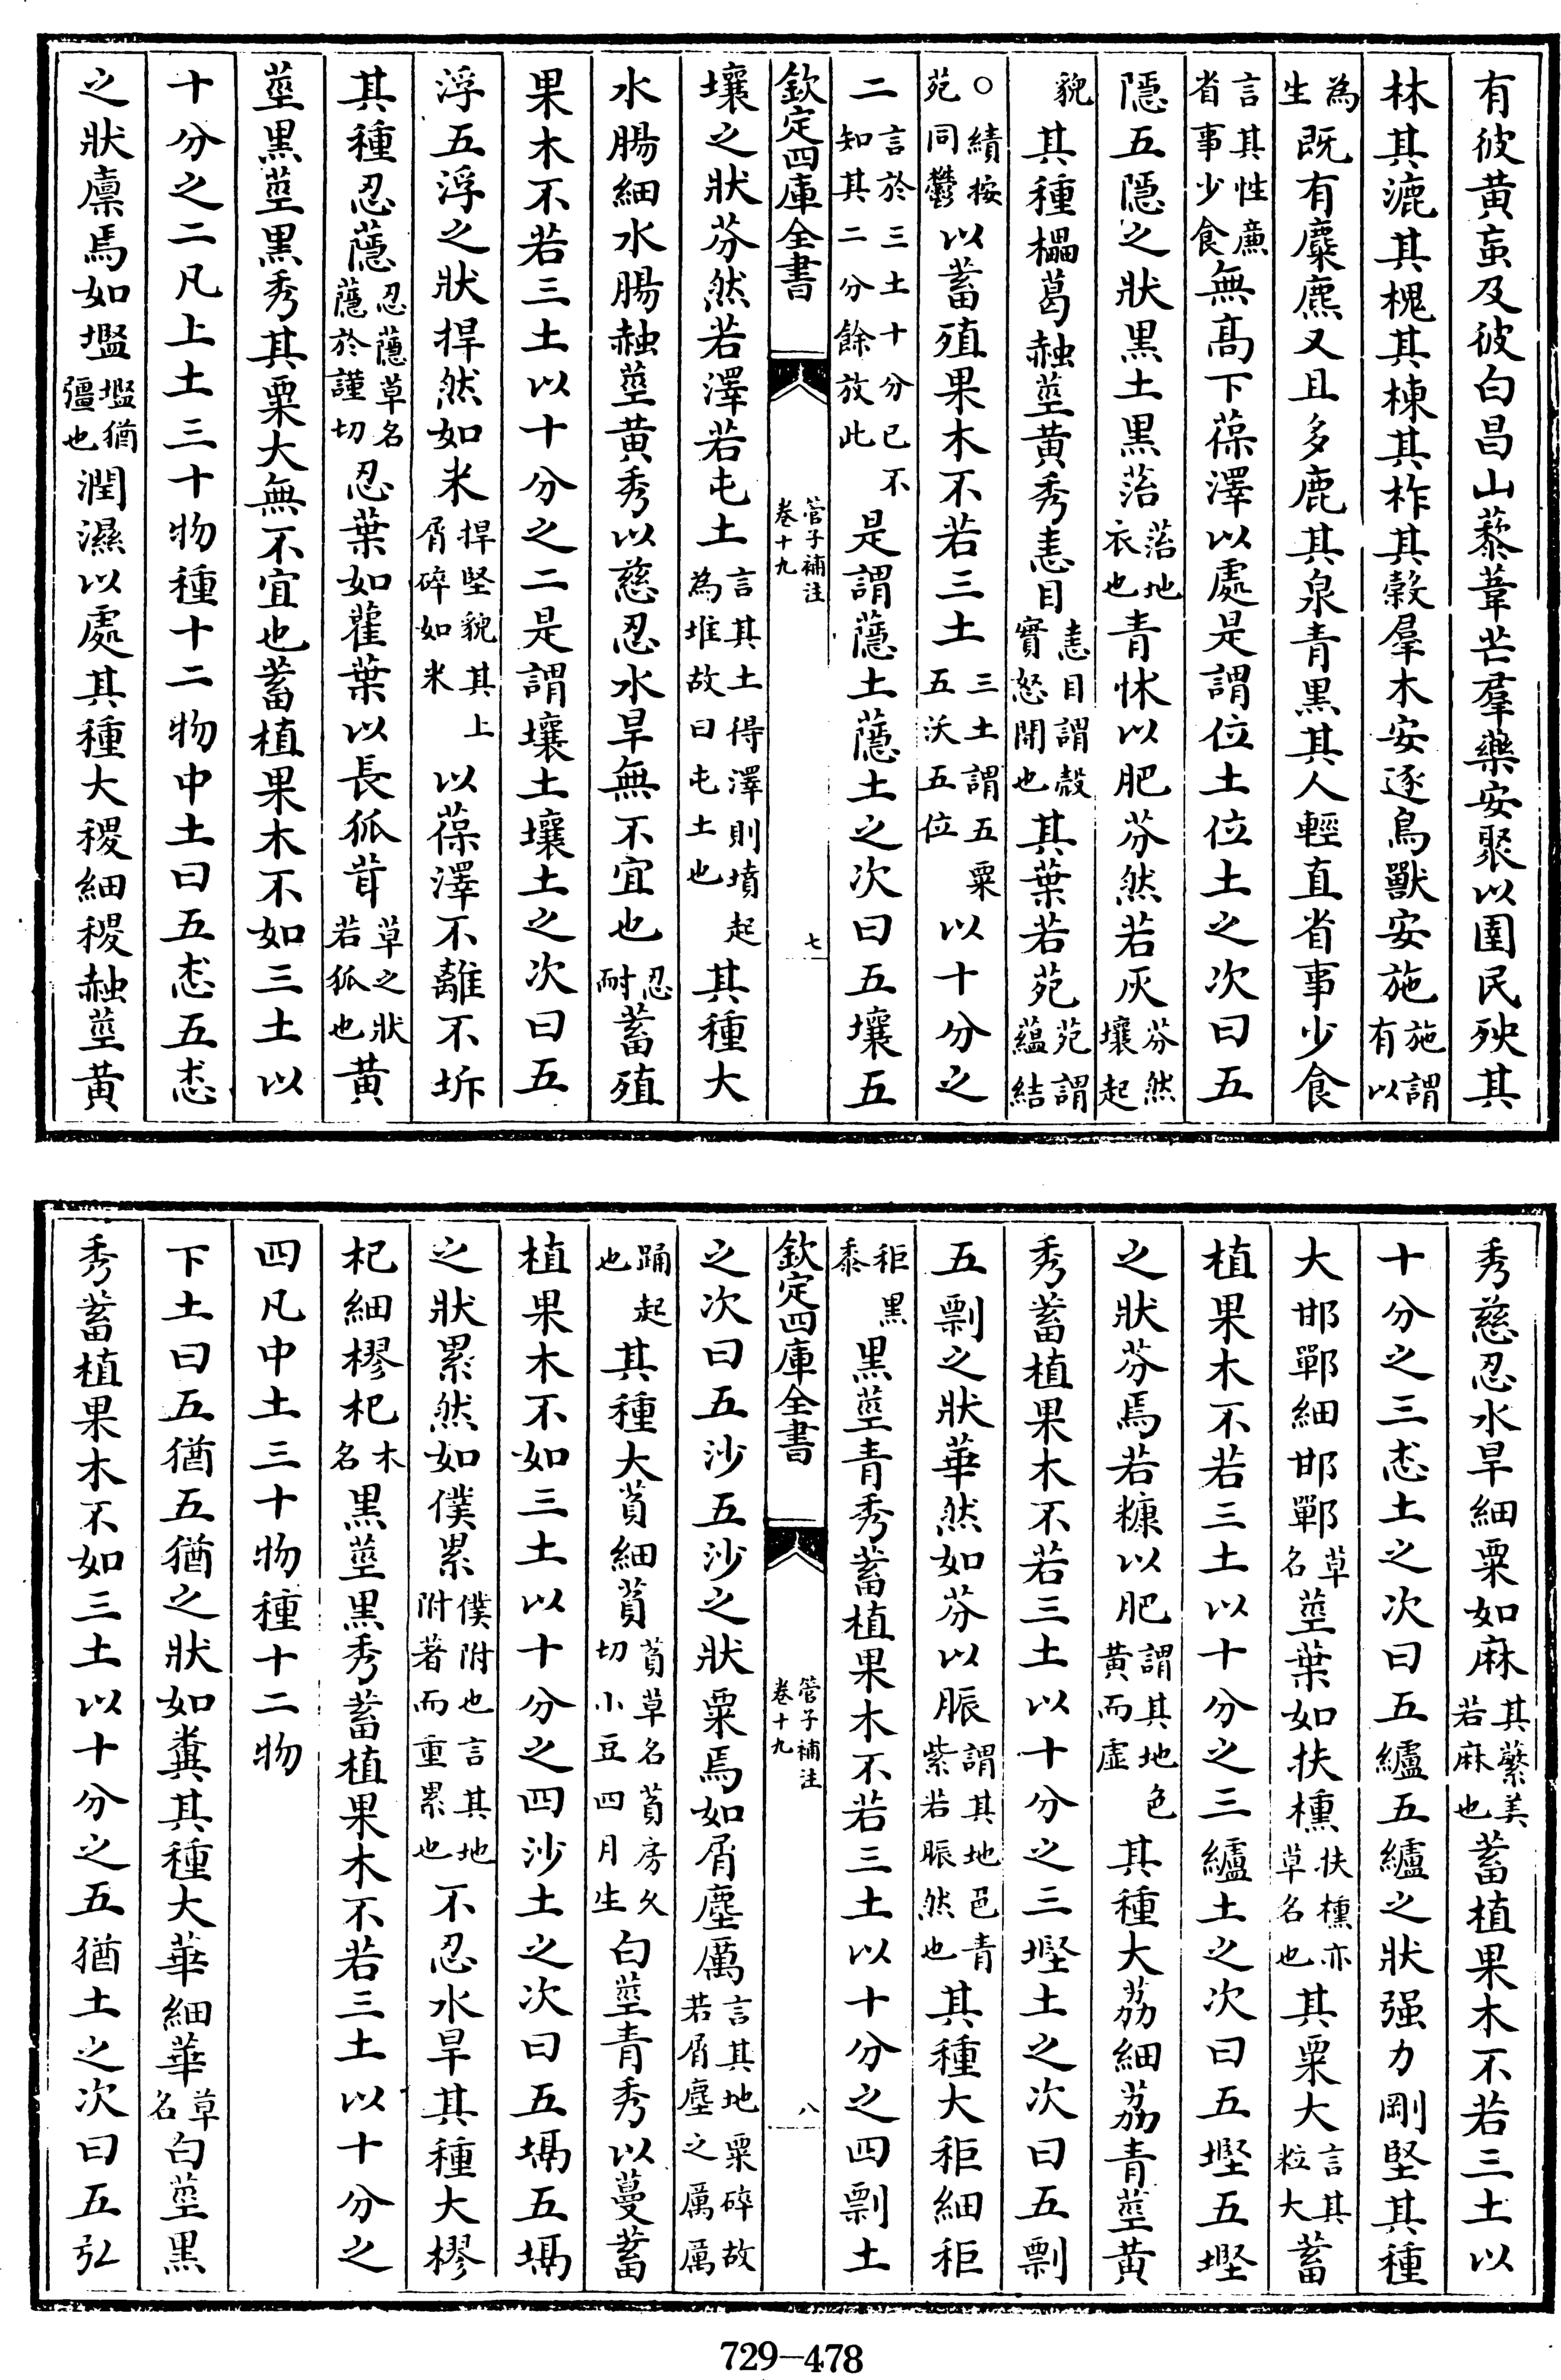 有彼黄䖟及彼白昌山藜葦芒羣藥安聚以圉民殃其
林其漉其槐其楝其柞其榖羣木安逐鳥獸安施施謂有以
為生既有麋麃又且多鹿其泉青黑其人輕直省事少食
言其性廉省事少食無髙下葆澤以處是謂位土位土之次曰五
隱五隱之狀黒土黒菭菭地衣也青怵以肥芬然若灰芬然壤起
貌其種櫑葛赨莖黄秀恚目恚目謂榖實怒開也其葉若苑苑謂蘊結
○績按苑同鬱以蓄殖果木不若三土三土謂五粟五沃五位以十分之
二言於三土十分已不知其二分餘放此是謂蘟土蘟土之次曰五壤五
欽定四庫全書
管子補注
卷十九
七
壤之狀芬然若澤若屯土言其土得澤則墳起為堆故曰屯土也其種大
水腸細水腸赨莖黄秀以慈忍水旱無不宜也忍耐蓄殖
果木不若三土以十分之二是謂壤土壤土之次曰五
浮五浮之狀捍然如米捍堅貌其上屑碎如米以葆澤不離不坼
其種忍蘟忍蘟草名蘟於謹切忍葉如雚葉以長狐茸草之狀若狐也黄
莖黒莖黒秀其粟大無不宜也蓄植果木不如三土以
十分之二凡上土三十物種十二物中土曰五怸五怸
之狀廪焉如壏壏猶彊也潤濕以處其種大稷細稷赨莖黄
秀慈忍水旱細粟如麻其蘩美若麻也蓄植果木不若三土以
十分之三怸土之次曰五纑五纑之狀强力剛堅其種
大邯鄲細邯鄲草名莖葉如扶櫄扶櫄亦草名也其粟大言其粒大蓄
植果木不若三土以十分之三纑土之次曰五壏五壏
之狀芬焉若糠以肥謂其地色黄而虚其種大荔細荔青莖黄
秀蓄植果木不若三土以十分之三壏土之次曰五剽
五剽之狀華然如芬以脤謂其地邑青紫若脤然也其種大秬細秬
秬黒黍黒莖青秀蓄植果木不若三土以十分之四剽土
欽定四庫全書
管子補注
卷十九
八
之次曰五沙五沙之狀粟焉如屑塵厲言其地粟碎故若屑塵之厲厲
踊起也其種大萯細萯萯草名萯房久切小豆四月生白莖青秀以蔓蓄
植果木不如三土以十分之四沙土之次曰五塥五塥
之狀累然如僕累僕附也言其地附著而重累也不忍水旱其種大樛
杞細樛杞木名黒莖黒秀蓄植果木不若三土以十分之
四凡中土三十物種十二物
下土曰五猶五猶之狀如糞其種大華細華草名白莖黒
秀蓄植果木不如三土以十分之五猶土之次曰五弘
729-478